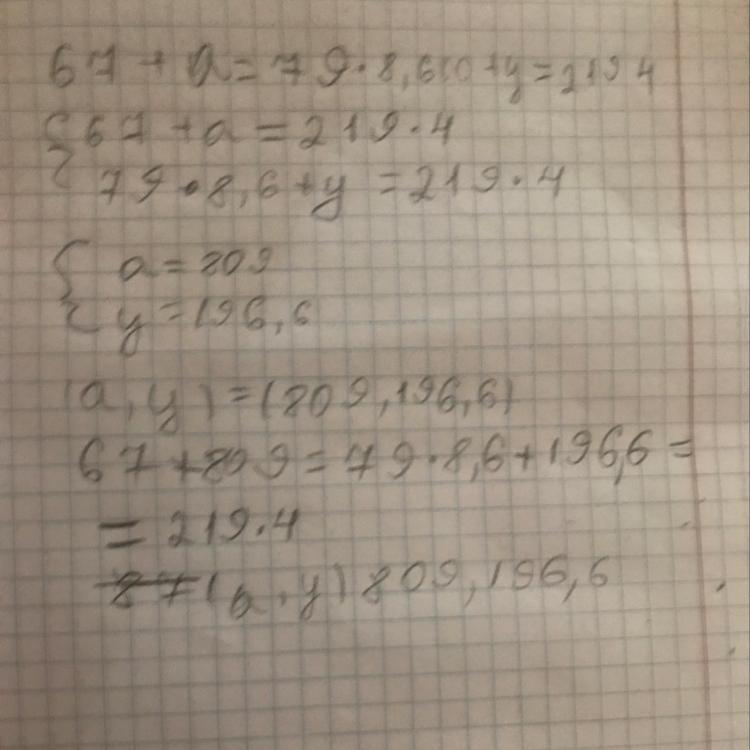 67 + a = 79 · 8,6(0 + y = 219 4
{ 67 + a = 219 · 4
79 · 8,6 + y = 219 · 4
{ a = 809
y = 196,6
(a, y) = (809, 196,6)
67 + 809 = 79 · 8,6 + 196,6 =
= 219 · 4
(a, y) 809, 196,6